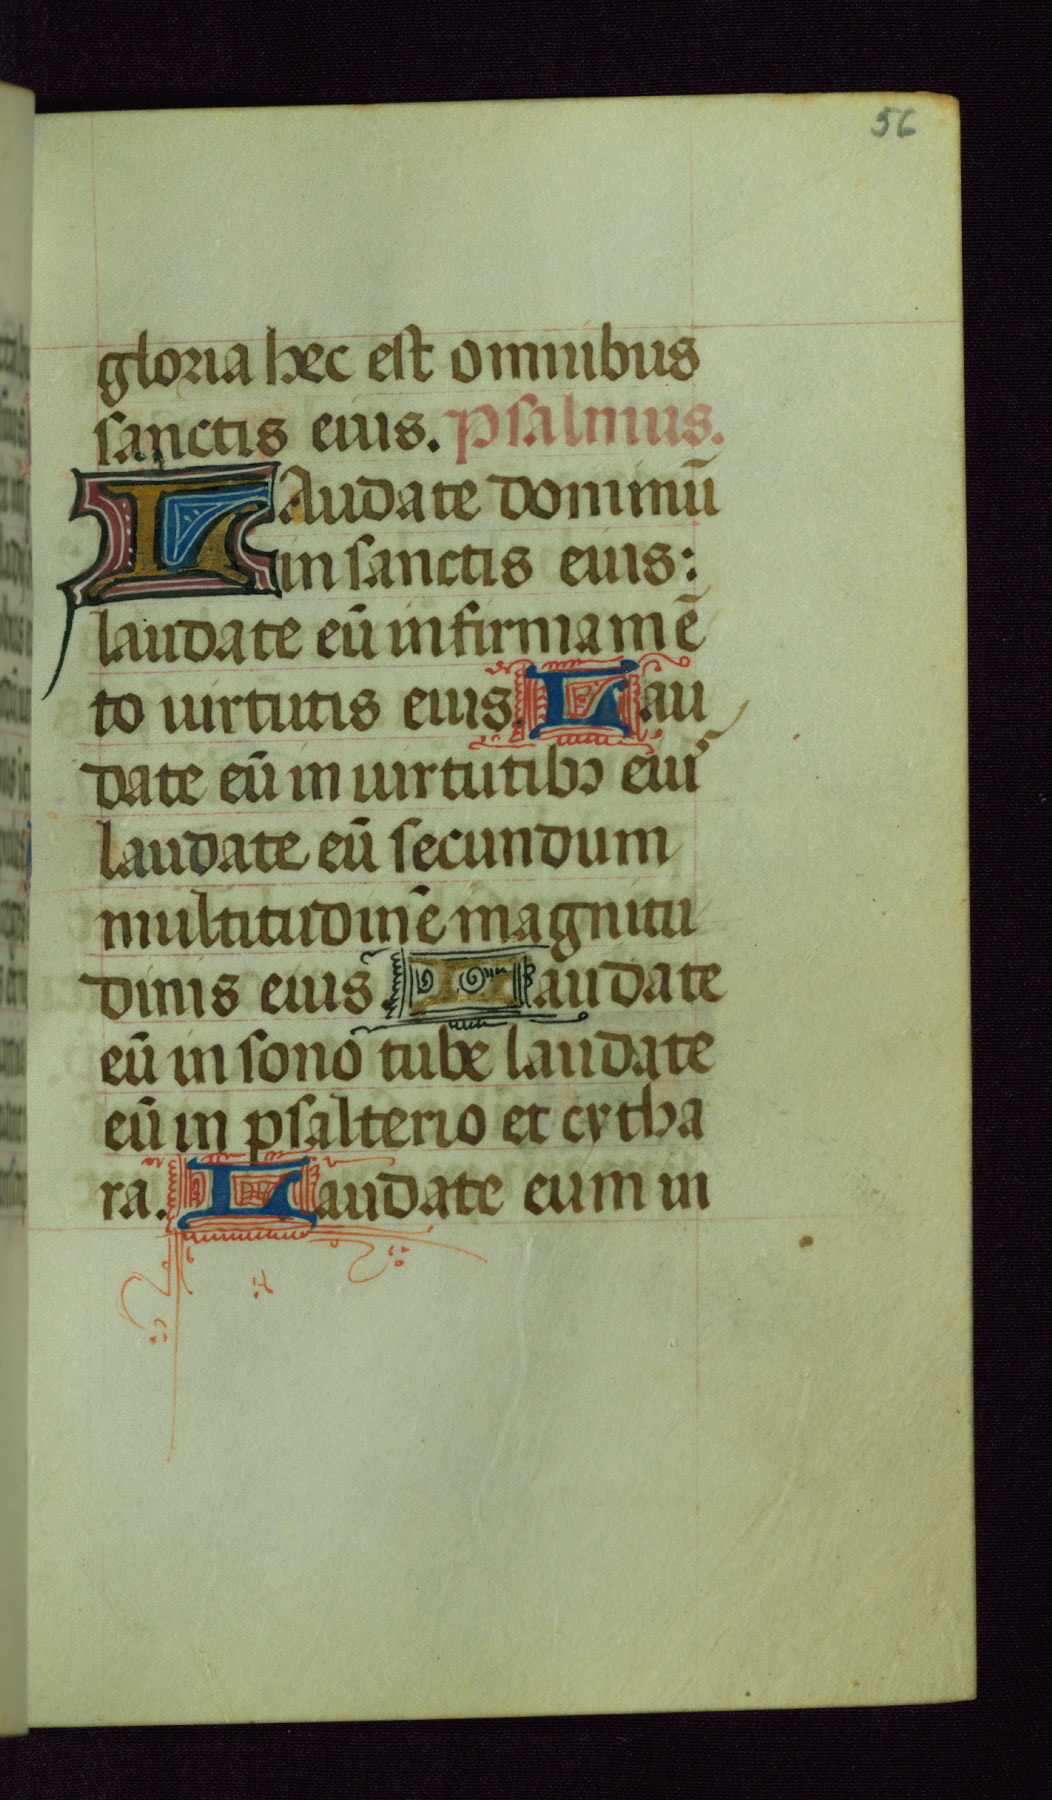 56
gloria hec est omnibus
sanctis eius. psalmus.
LAudate dominū
in sanctis eius:
laudate eū in firmamē
to uirtutis eius. Lau
date eū in uirtutibꝫ eius
laudate eū secundum
multitudinē magnitu
dinis eius. Laudate
eū in sono tube laudate
eū in psalterio et cytha
ra. Laudate eum in